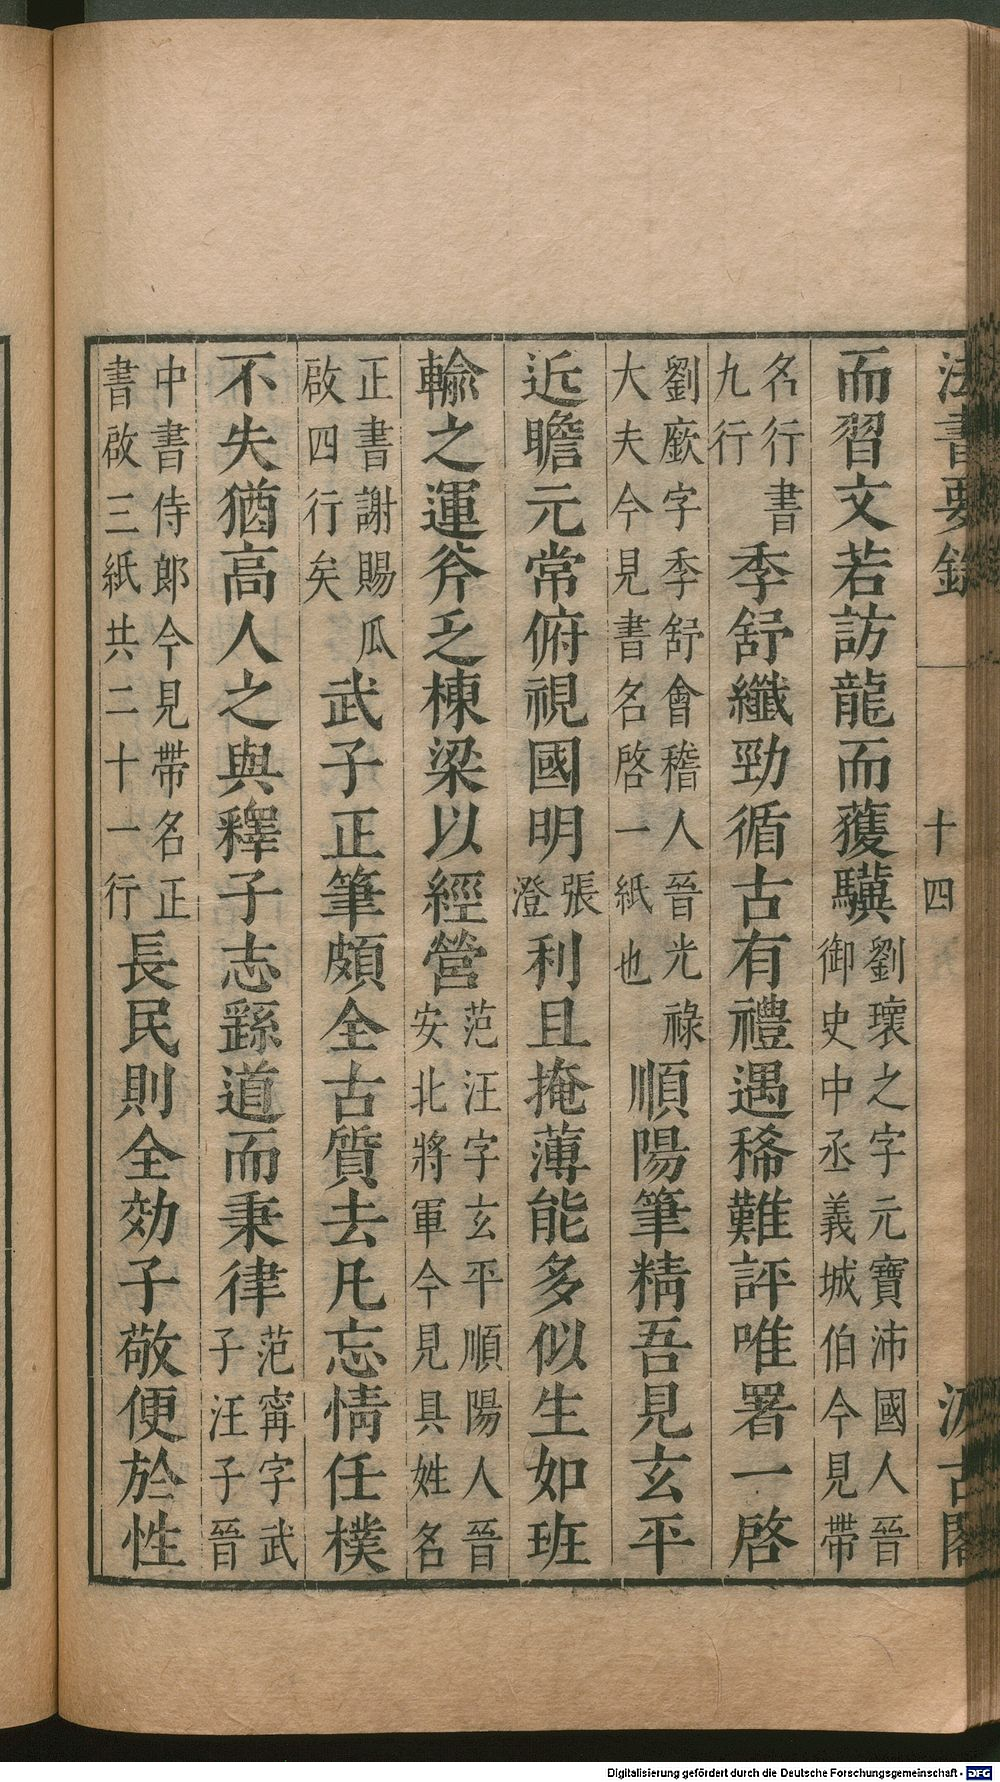 法書要錄
十四
汲古閣
而習文若訪龍而獲驥劉瓌之字元寶沛國人晉御史中丞義城伯今見帶
名行書九行季舒纖勁循古有禮遇稀難評唯署一啓
劉廞字季舒會稽人晉光祿大夫今見書名啓一紙也順陽筆精吾見玄平
近瞻元常俯視國明張澄利且掩薄能多似生如班
輸之運斧乏棟梁以經營范汪字玄平順陽人晉安北將軍今見具姓名
正書謝賜瓜啟四行矣武子正筆頗全古質去凡忘情任樸
不失猶高人之與釋子志繇道而秉律范甯字武子汪子晉
中書侍郎今見帶名正書啟三紙共二十一行長民則全効子敬便於性
Digitalisierung gefördert durch die Deutsche Forschungsgemeinschaft - DFG